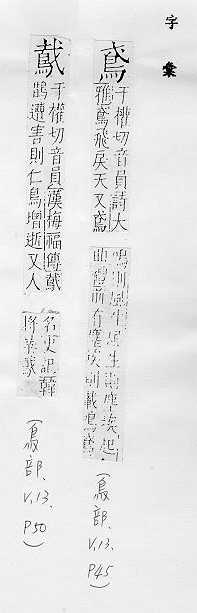 字彙
鳶
于權切音員詩大
雅鳶飛戾天又鳶
鳴則風生風生則塵埃起
曲禮前有塵埃則載鳴鳶
(鳥部. V.13. P45)
于權切音員漢梅福傳
鵲遭害則仁鳥增逝又人
名史記韓
將
(鳥部. V.13. P50)